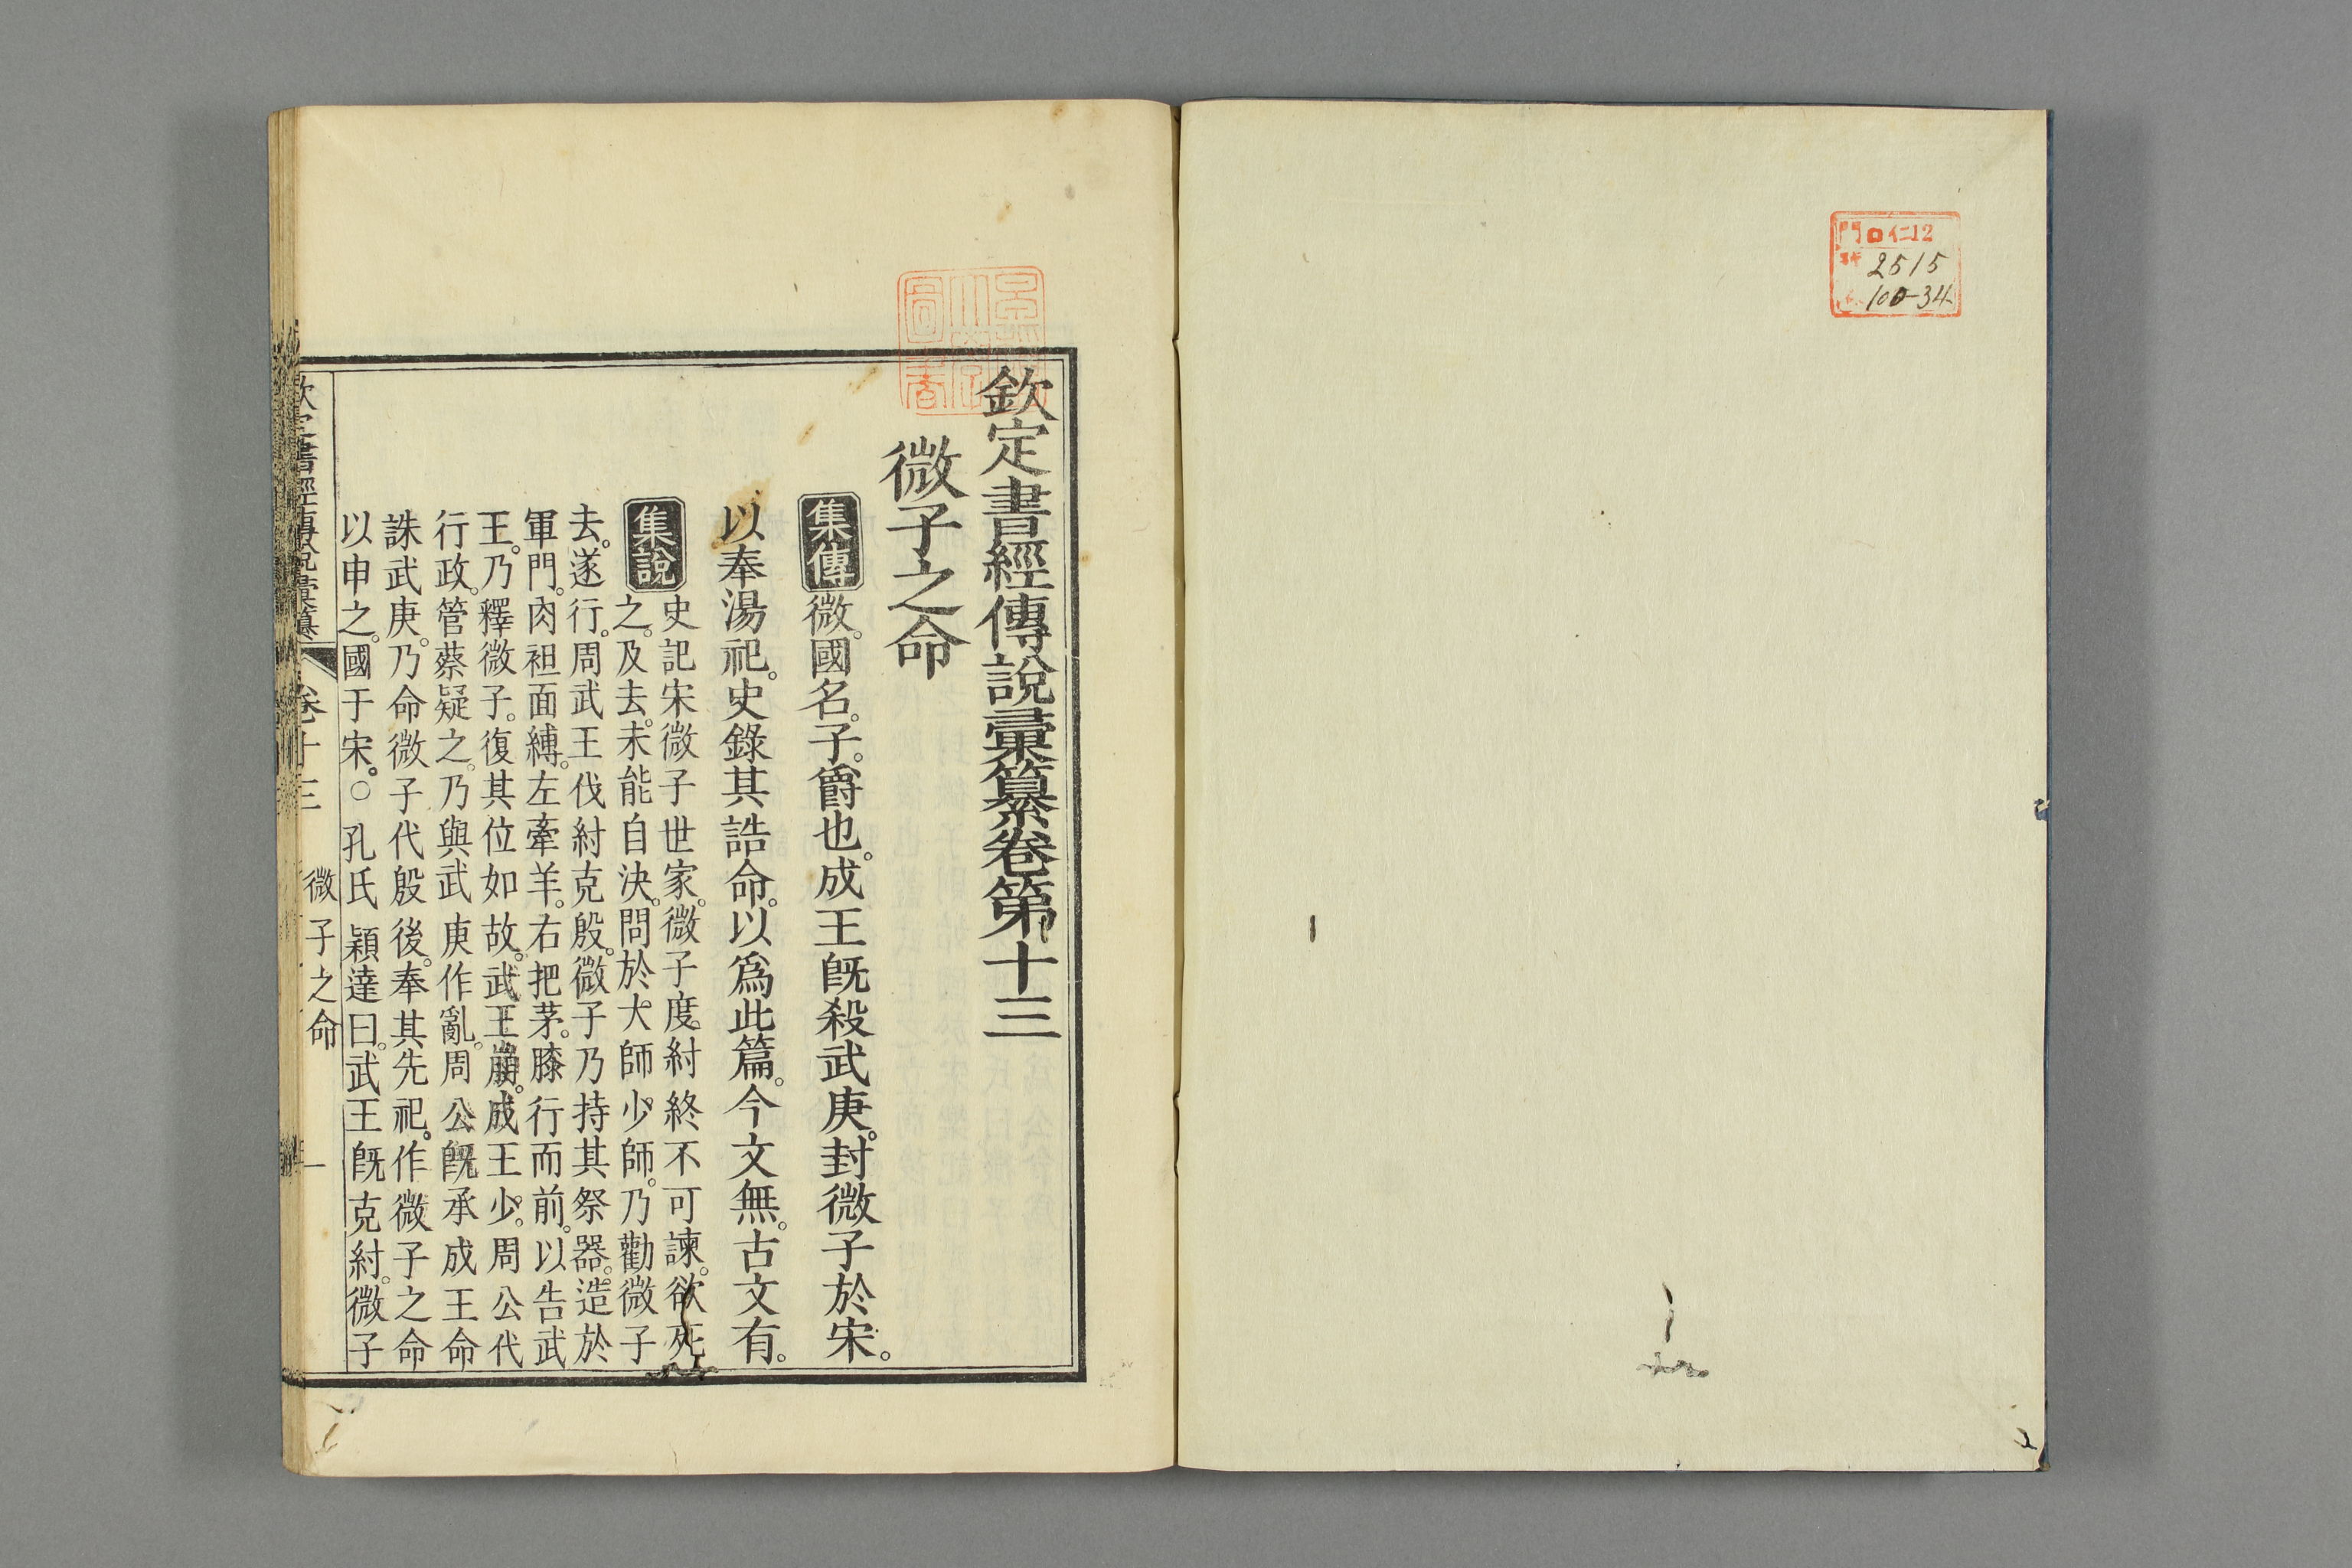 門口仁12
號2515
100-34
欽定書經傳說彙纂卷第十三
微子之命
集傳微。國名。子。爵也。成王旣殺武庚。封微子於宋。
以奉湯祀。史錄其誥命。以爲此篇。今文無。古文有。
集說史記宋微子世家。微子度紂終不可諫。欲死
之。及去。未能自決。問於大師少師。乃勸微子
去。遂行。周武王伐紂克殷。微子乃持其祭器。造於
軍門。肉袒面縛。左牽羊。右把茅。膝行而前。以告武
王。乃釋微子。復其位如故。武王崩。成王少。周公代
行政。管蔡疑之。乃與武庚作亂。周公旣承成王命
誅武庚。乃命微子代殷後。奉其先祀。作微子之命
以申之。國于宋。○孔氏穎達曰。武王旣克紂。微子
欽定書經傳說彙纂 卷十三 微子之命 一